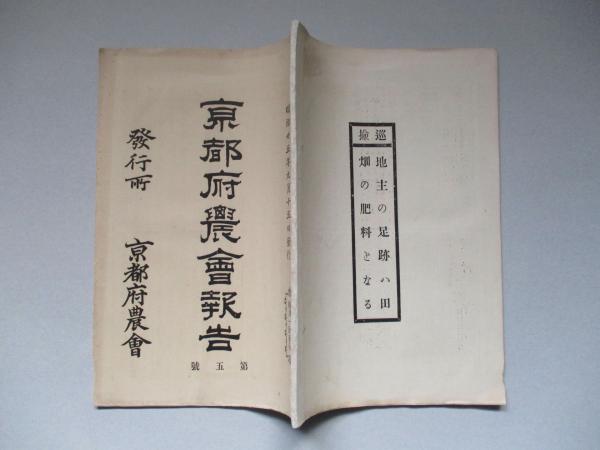 京都府農會報告
第五號
發行所 京都府農會
巡撿
地主の足跡ハ田
畑の肥料となる